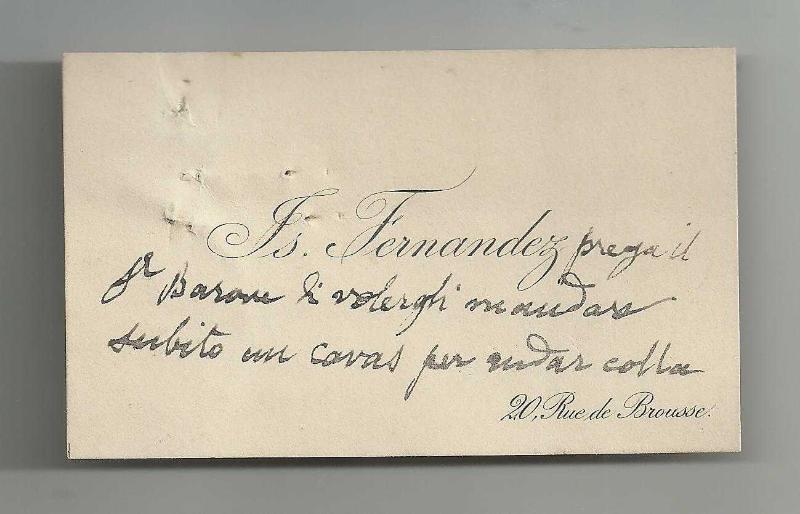 Is. Fernandez prega il
Sr Barone di volergli mandare
subito un cavas per andar colla
20, Rue de Brousse.